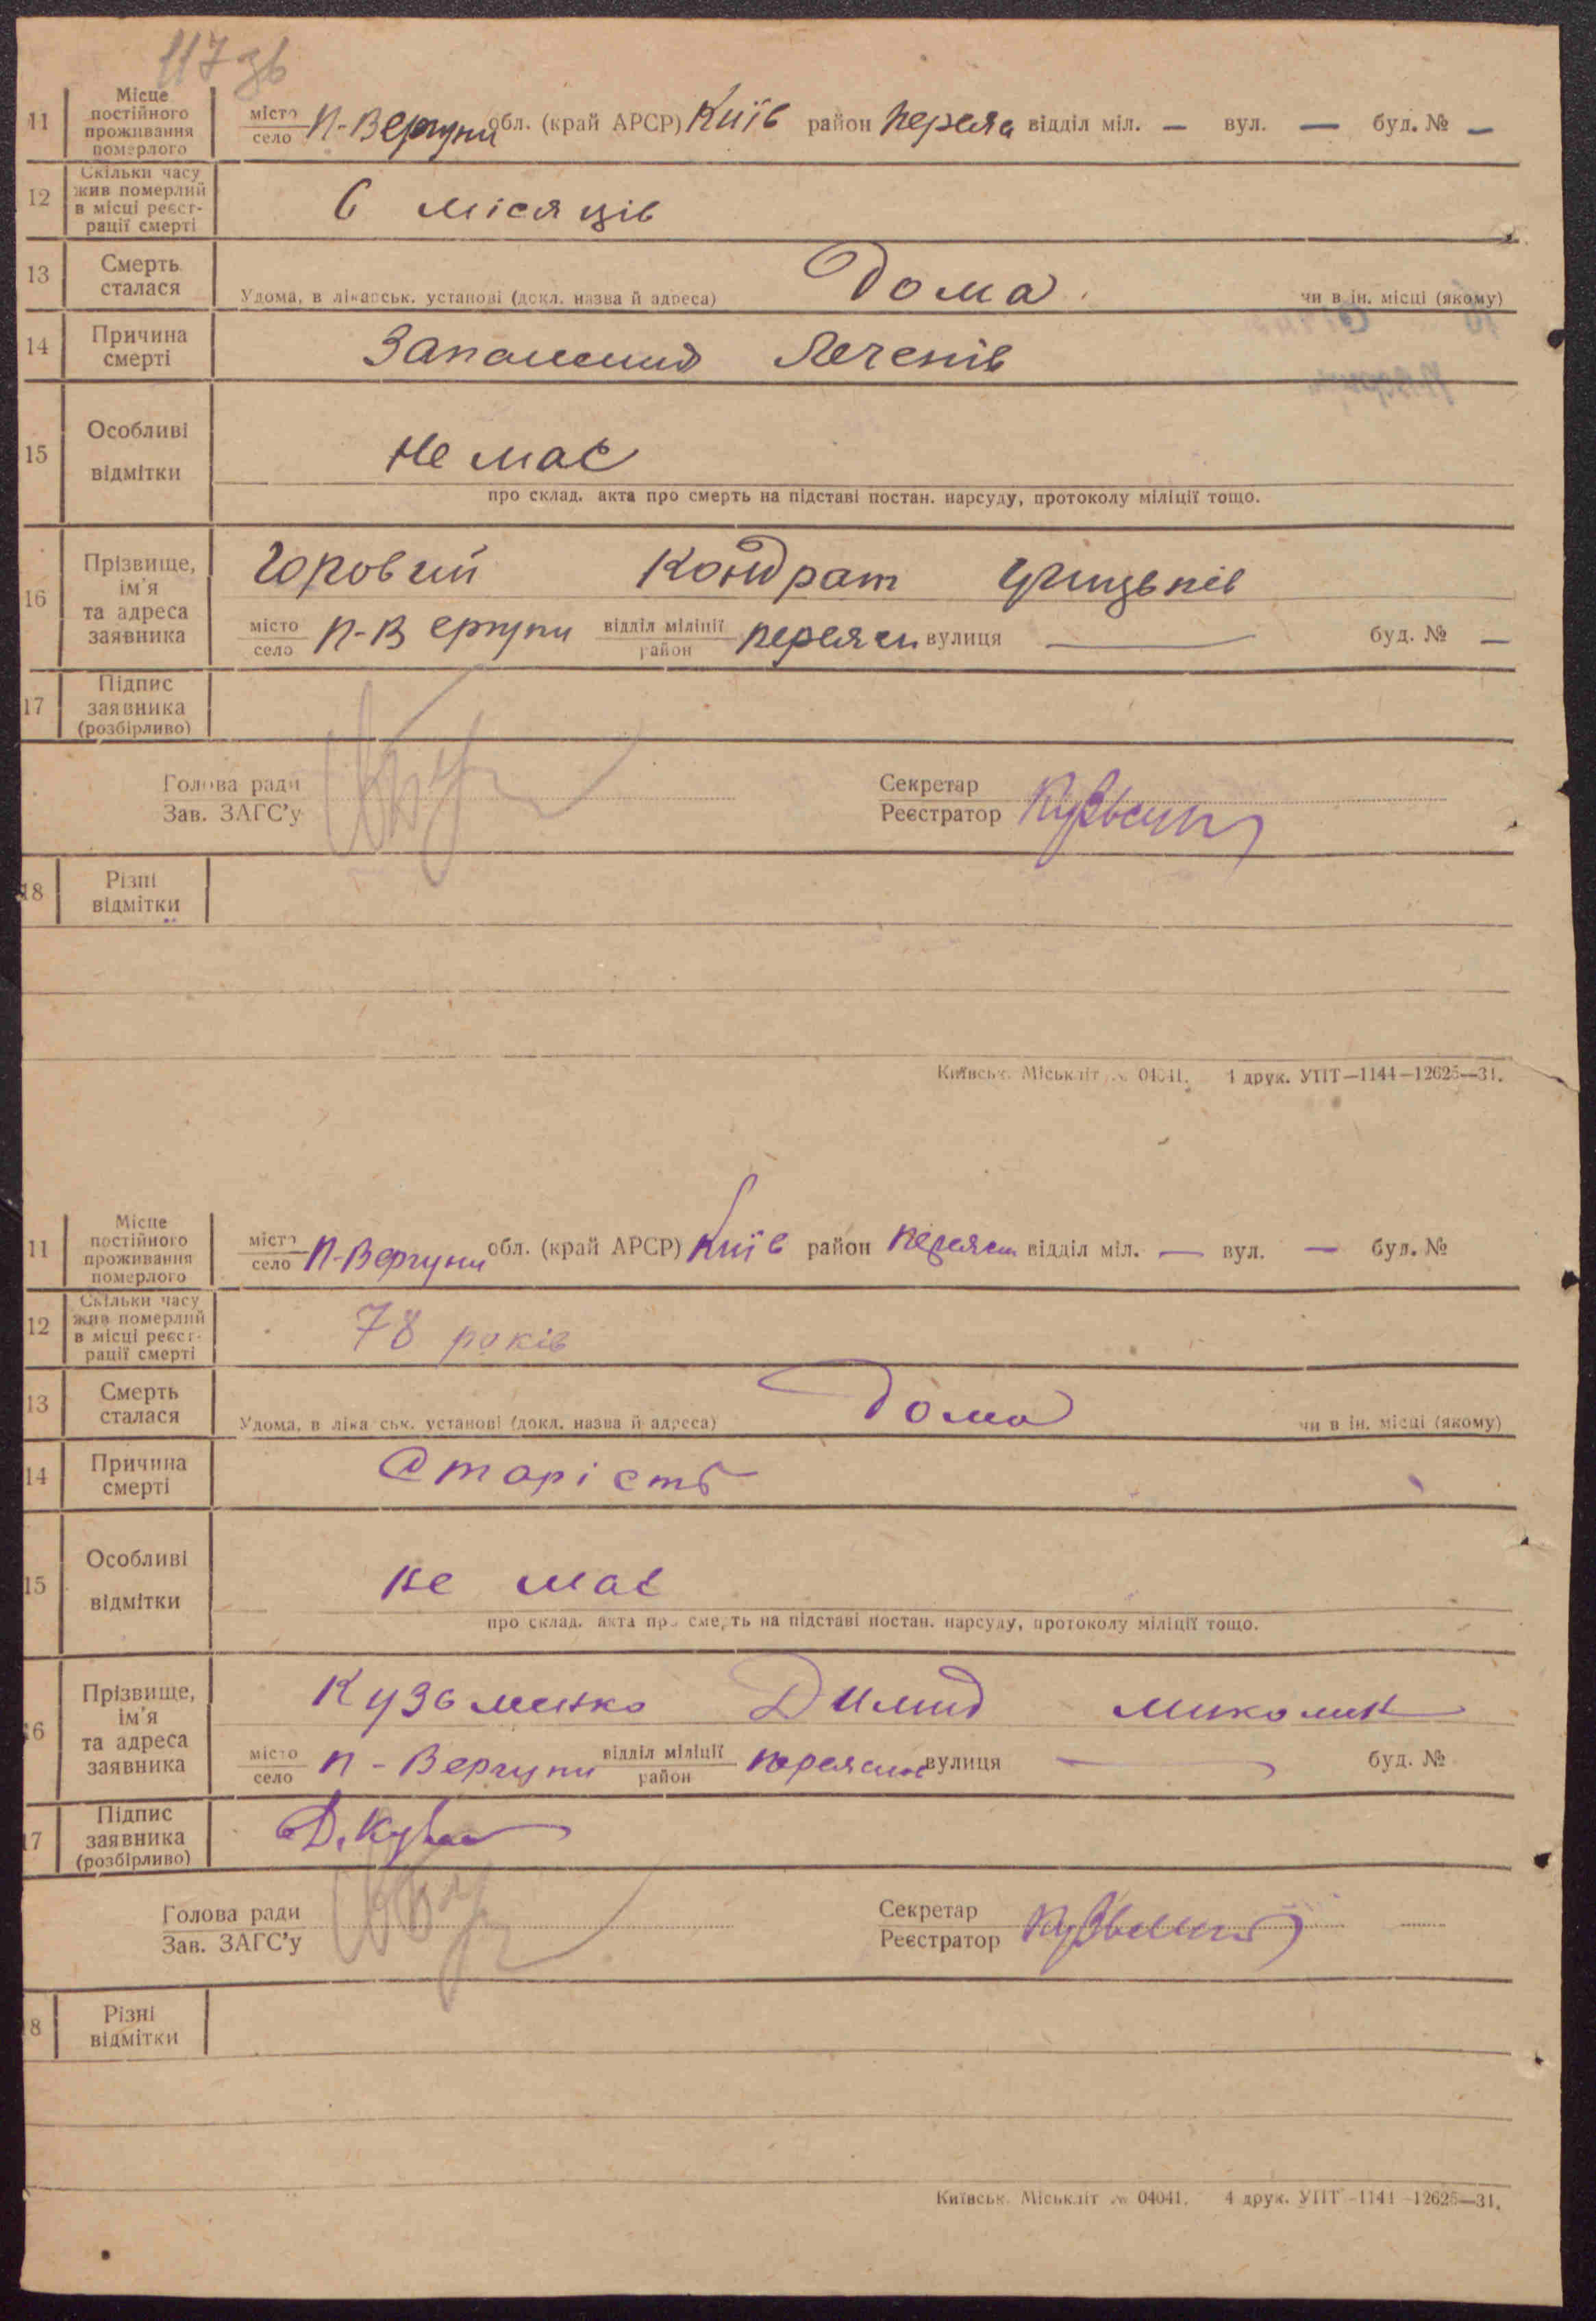 117 зв
11 Місце постійного проживання померлого місто село П-Вергуни обл. (край АРСР) Київ район Переяс відділ міл. — вул. — буд. № —
12 Скільки часу жив померлий в місці реєстрації смерті 6 місяців
13 Смерть сталася Удома, в лікарськ. установі (докл. назва й адреса) Дома чи в ін. місці (якому)
14 Причина смерті Запаленид Легенів
15 Особливі відмітки Не має
про склад. акта про смерть на підставі постан. нарсуду, протоколу міліції тощо.
16 Прізвище, ім'я та адреса заявника Горовий Кондрат
місто село П-Вергуни відділ міліції район Переяс вулиця — буд. № —
17 Підпис заявника (розбірливо)
Голова ради Секретар
Зав. ЗАГС'у Реєстратор
18 Різні відмітки
Київськ. Міськліт № 04041. 4 друк. УПТ—1144—12625—31.
11 Місце постійного проживання померлого місто село П-Вергуни обл. (край АРСР) Київ район Переяс відділ міл. — вул. — буд. №
12 Скільки часу жив померлий в місці реєстрації смерті 78 років
13 Смерть сталася Удома, в лікарськ. установі (докл. назва й адреса) Дома чи в ін. місці (якому)
14 Причина смерті Старість
15 Особливі відмітки не має
про склад. акта про смерть на підставі постан. нарсуду, протоколу міліції тощо.
16 Прізвище, ім'я та адреса заявника Кузьменко Димид
місто село П-Вергуни відділ міліції район Переяс вулиця — буд. №
17 Підпис заявника (розбірливо)
Голова ради Секретар
Зав. ЗАГС'у Реєстратор
18 Різні відмітки
Київськ. Міськліт № 04041. 4 друк. УПТ—1144—12625—31.